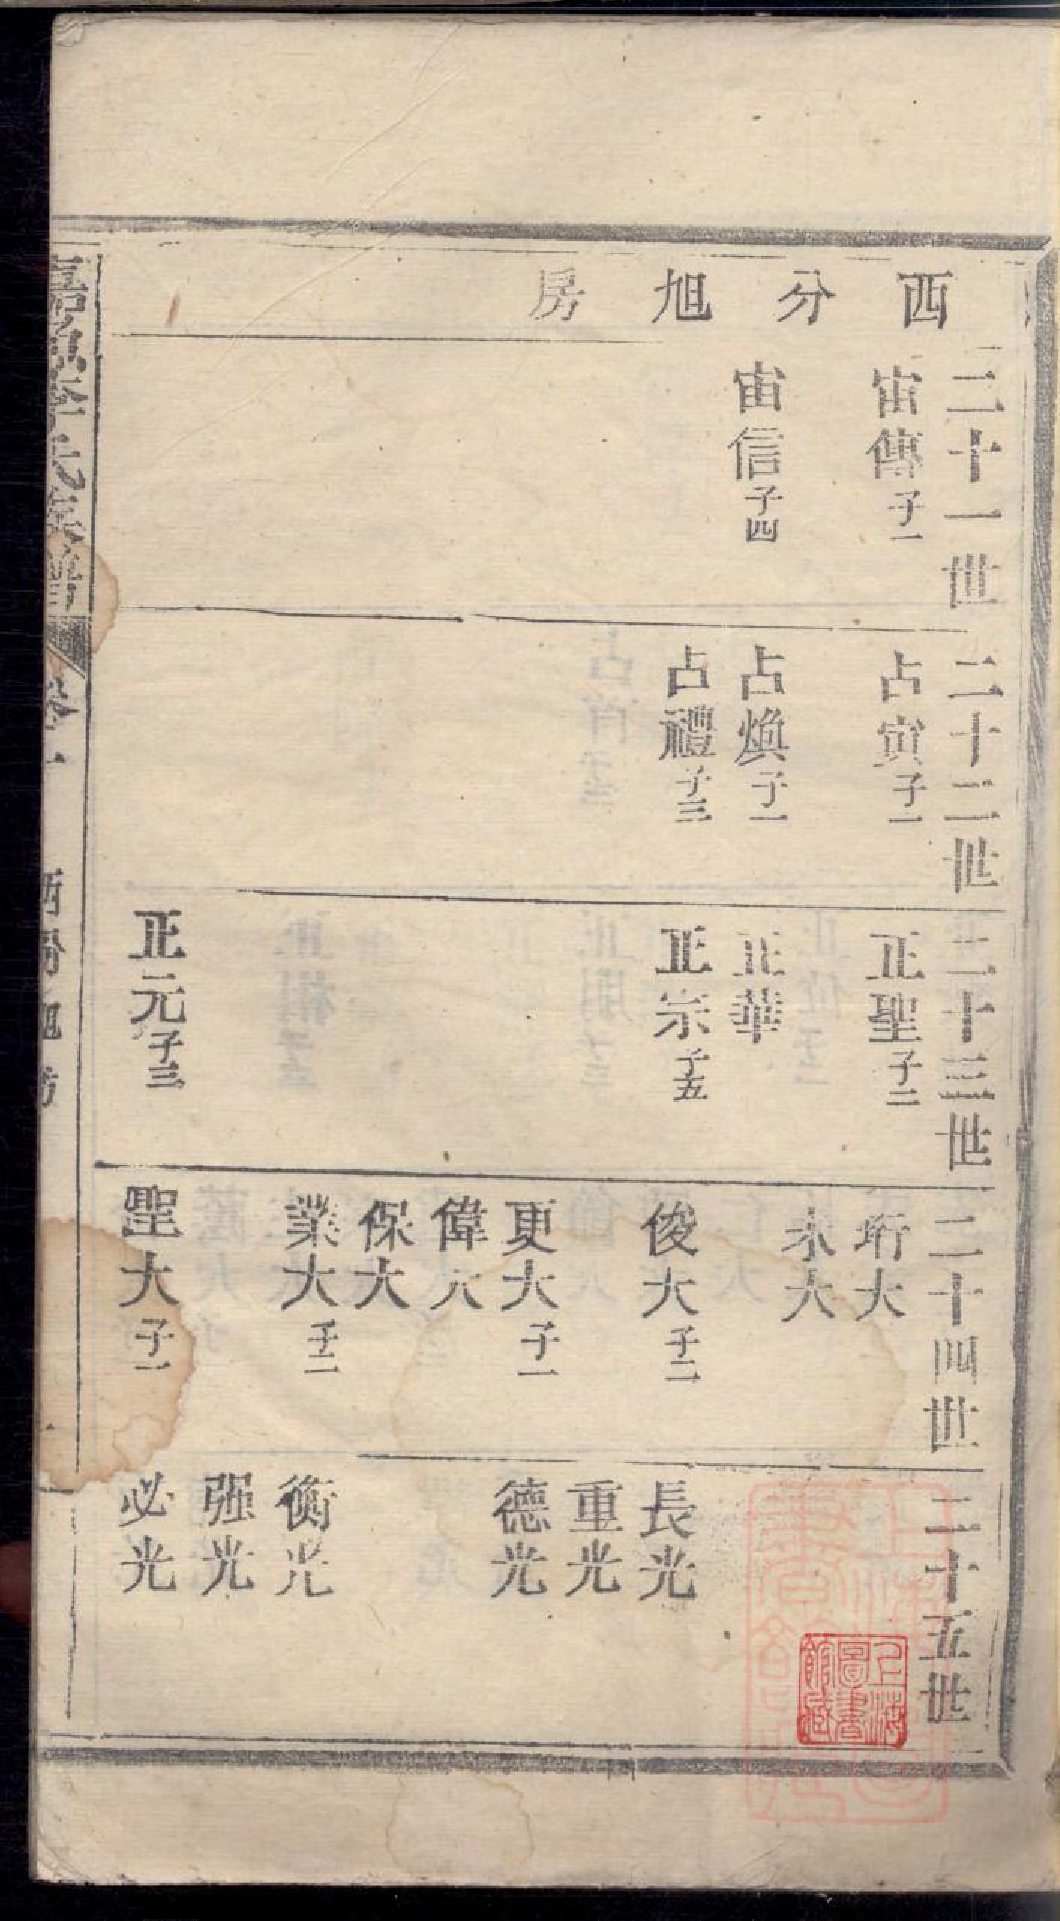 西分旭房
二十一世
宙傳子一
宙信子四
二十二世
占寅子一
占煥子一
占禮子三
二十三世
正聖子二
正華
正宗子五
正元子三
二十四世
珩大
永大
俊大子二
更大子一
偉大
保大
業大子二
聖大子一
二十五世
長光
重光
德光
衡光
强光
必光
西分旭房
上海圖書館藏